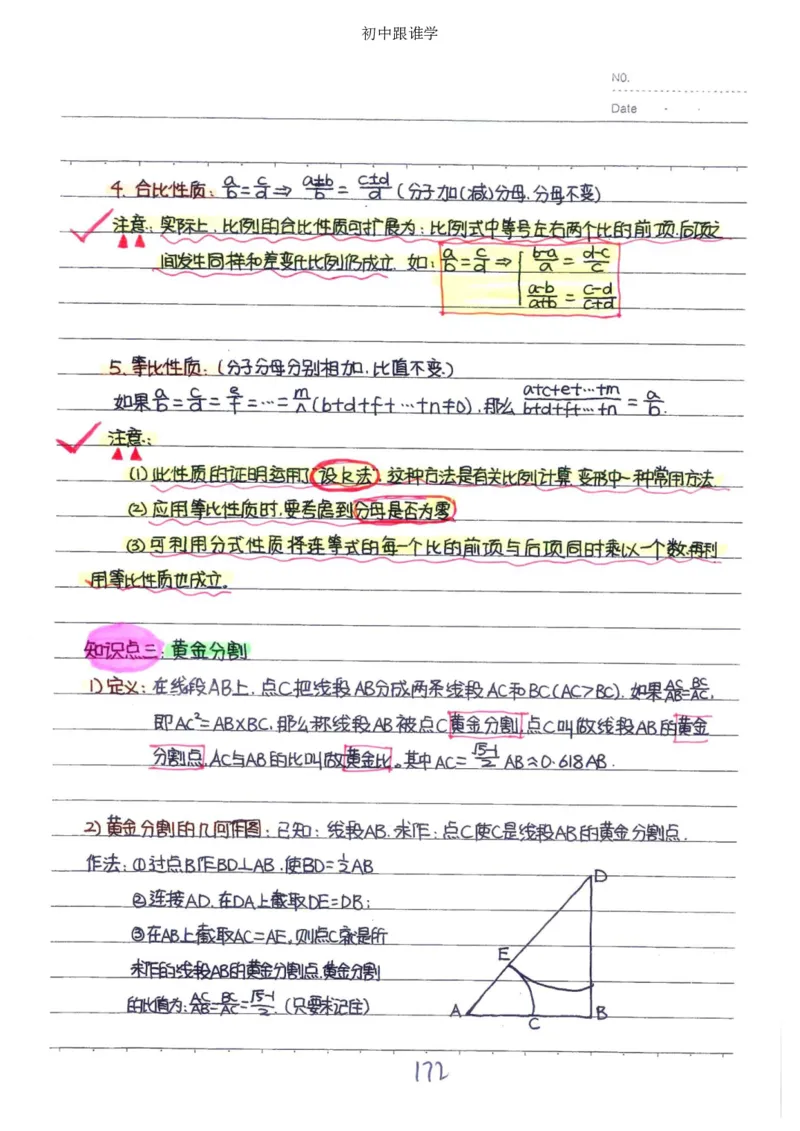 初中跟谁学
NO.
Date
4. 合比性质: a/b=c/d⇒ (a±b)/b = (c±d)/d (分子加(减)分母,分母不变)
注意: 实际上,比例的合比性质可扩展为:比例式中等号左右两个比的前项.后项之
间发生同样和差变化比例仍成立. 如: a/b=c/d⇒{(b-a)/a = (d-c)/c
(a-b)/(a+b) = (c-d)/(c+d)
5、等比性质:(分子分母分别相加,比值不变.)
如果a/b=c/d=e/f=…=m/n(b+d+f+…+n≠0),那么 (a+c+e+…+m)/(b+d+f+…+n) = a/b.
注意:
(1)此性质的证明运用了“设k法”,这种方法是有关比例计算,变形中一种常用方法.
(2)应用等比性质时,要考虑到分母是否为零
(3)可利用分式性质将连等式的每一个比的前项与后项同时乘以一个数,再利
用等比性质也成立。
知识点三:黄金分割
1)定义:在线段AB上,点C把线段AB分成两条线段AC和BC(AC>BC).如果AC/AB=BC/AC,
即AC²=AB×BC,那么称线段AB被点C黄金分割,点C叫做线段AB的黄金
分割点,AC与AB的比叫做黄金比。其中AC=(√5-1)/2 AB≈0.618AB.
2)黄金分割的几何作图:已知:线段AB.求作:点C使C是线段AB的黄金分割点.
作法:①过点B作BD⊥AB,使BD=1/2AB
②连接AD,在DA上截取DE=DB;
③在AB上截取AC=AE,则点C就是所
求作的线段AB的黄金分割点.黄金分割
的比值为:AC/AB=BC/AC=(√5-1)/2.(只要求记住)
D
E
A
C
B
172